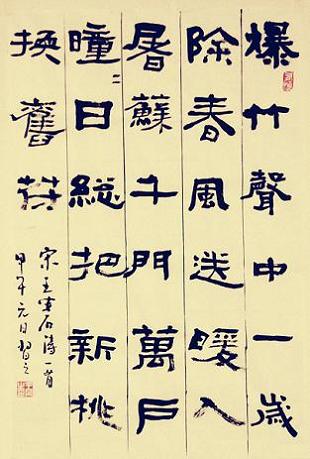 爆竹聲中一歲
除春風送暖入
屠蘇千門萬戶
曈〻日總把新桃
換舊符
宋王安石詩一首
甲午元日